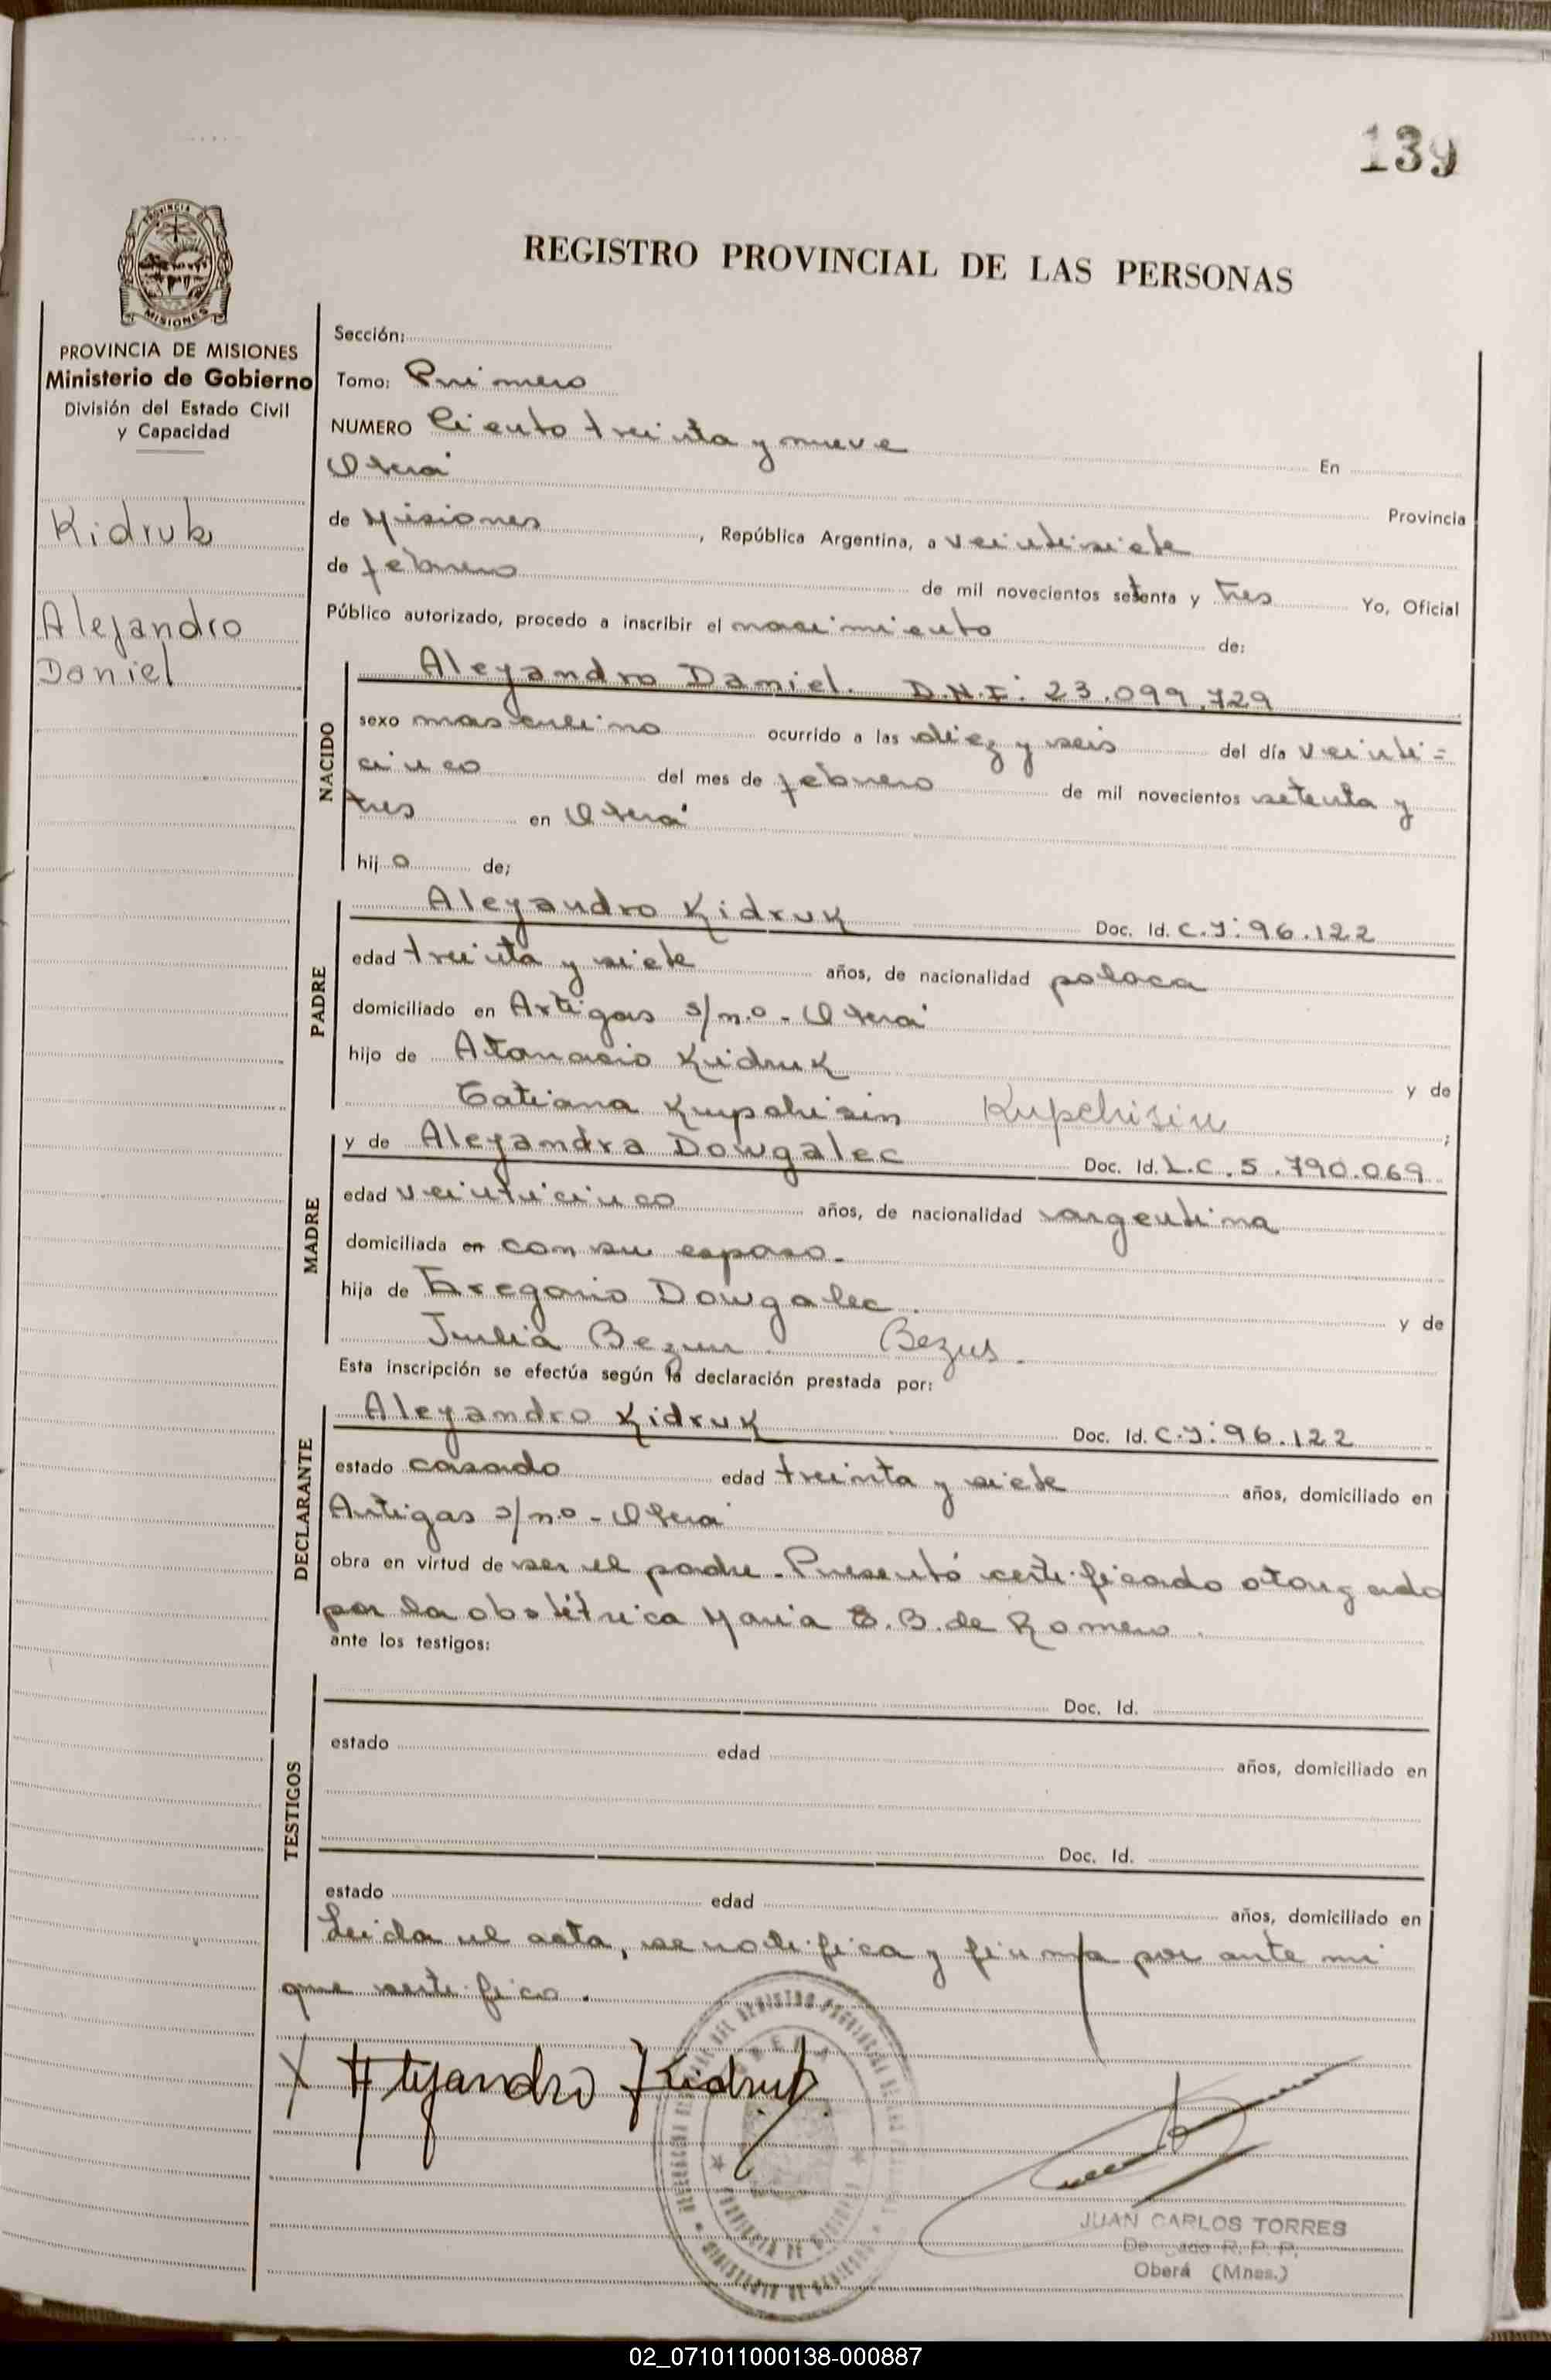 139
PROVINCIA DE MISIONES
REGISTRO PROVINCIAL DE LAS PERSONAS
PROVINCIA DE MISIONES
Ministerio de Gobierno
División del Estado Civil
y Capacidad
Kidruk
Alejandro
Daniel
Sección:
Tomo: Primero
NUMERO Ciento treinta y nueve En
Oberá Provincia
de Misiones, República Argentina, a veintisiete
de febrero de mil novecientos setenta y tres Yo, Oficial
Público autorizado, procedo a inscribir el nacimiento de:
NACIDO
Alejandro Daniel. D.N.I: 23.099.729
sexo masculino ocurrido a las diez y seis del día veinti=
cinco del mes de febrero de mil novecientos setenta y
tres en Oberá
hijo de;
PADRE
Alejandro Kidruk Doc. Id. C.I: 96.122
edad treinta y siete años, de nacionalidad polaca
domiciliado en Artigas s/n.o - Oberá
hijo de Atanacio Kidruk y de
Tatiana Kupchisin Kupchisin ;
MADRE
y de Alejandra Dowgalec Doc. Id. L.C. 5.790.069
edad veinticinco años, de nacionalidad argentina
domiciliada en con su esposo.
hija de Gregorio Dowgalec. y de
Julia Bezus. Bezus.
Esta inscripción se efectúa según la declaración prestada por:
DECLARANTE
Alejandro Kidruk Doc. Id. C.I: 96.122
estado casado edad treinta y siete años, domiciliado en
Artigas s/n.o - Oberá
obra en virtud de ser el padre. Presentó certificado otorgado
por la obstétrica María E. B. de Romero.
ante los testigos:
TESTIGOS
Doc. Id.
estado edad años, domiciliado en
Doc. Id.
estado edad años, domiciliado en
Leida el acta, se notifica y firma por ante mi
que certifico.
X Alejandro Kidruk
JUAN CARLOS TORRES
R. P. P.
Oberá (Mnes.)
02_071011000138-000887